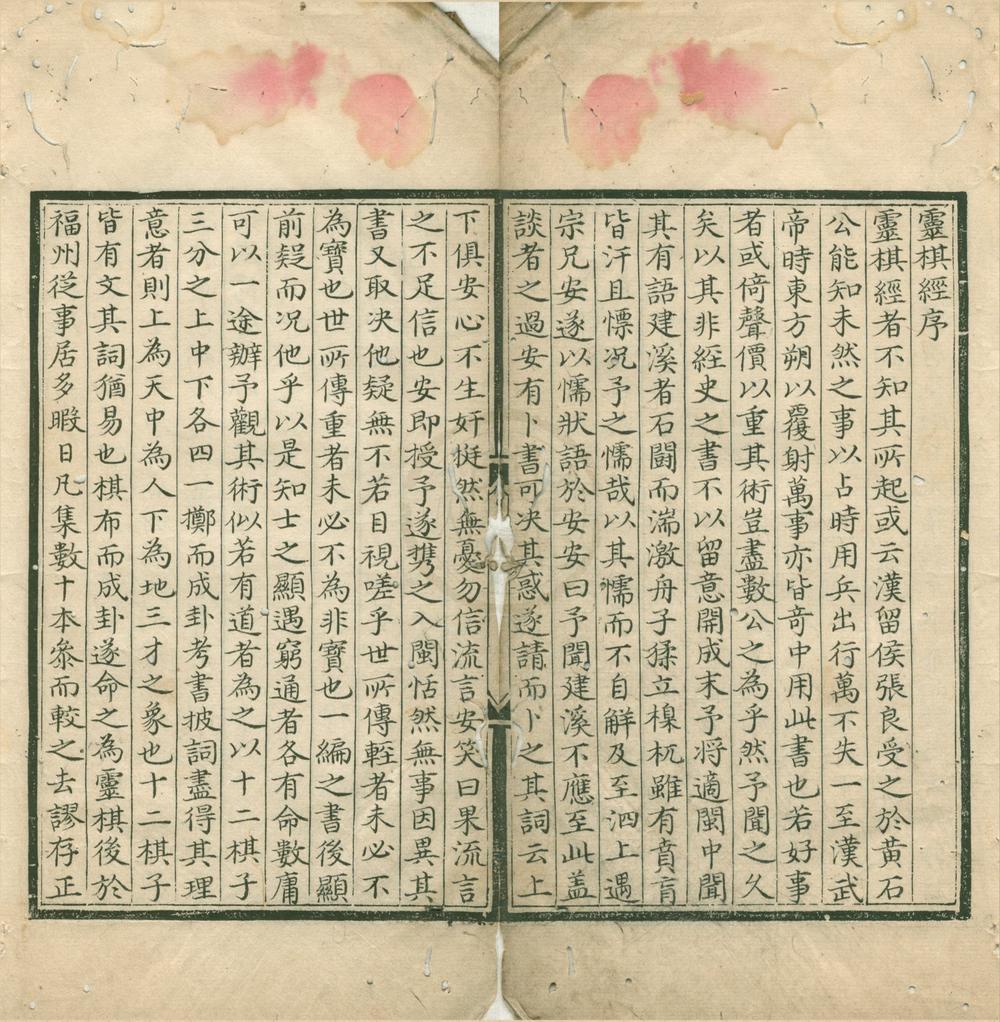 靈棋經序
靈棋經者不知其所起或云漢留侯張良受之於黃石
公能知未然之事以占時用兵出行萬不失一至漢武
帝時東方朔以覆射萬事亦皆奇中用此書也若好事
者或倚聲價以重其術豈盡數公之為乎然予聞之久
矣以其非經史之書不以留意開成末予将適閩中聞
其有語建溪者石鬪而湍激舟子揉立㮆杌雖有賁育
皆汗且慓况予之懦哉以其懦而不自觧及至泗上遇
宗兄安遂以懦狀語於安安曰予聞建溪不應至此盖
談者之過安有卜書可决其惑遂請而卜之其詞云上
下俱安心不生奸挺然無憂勿信流言安笑曰果流言
之不足信也安即授予遂携之入閩恬然無事因異其
書又取决他疑無不若目視嗟乎世所傳輕者未必不
為寶也世所傳重者未必不為非寶也一編之書後顯
前疑而况他乎以是知士之顯遇窮通者各有命數庸
可以一途辦予觀其術似若有道者為之以十二棋子
三分之上中下各四一擲而成卦考書披詞盡得其理
意者則上為天中為人下為地三才之象也十二棋子
皆有文其詞猶易也棋布而成卦遂命之為靈棋後於
福州從事居多暇日凡集數十本叅而較之去謬存正